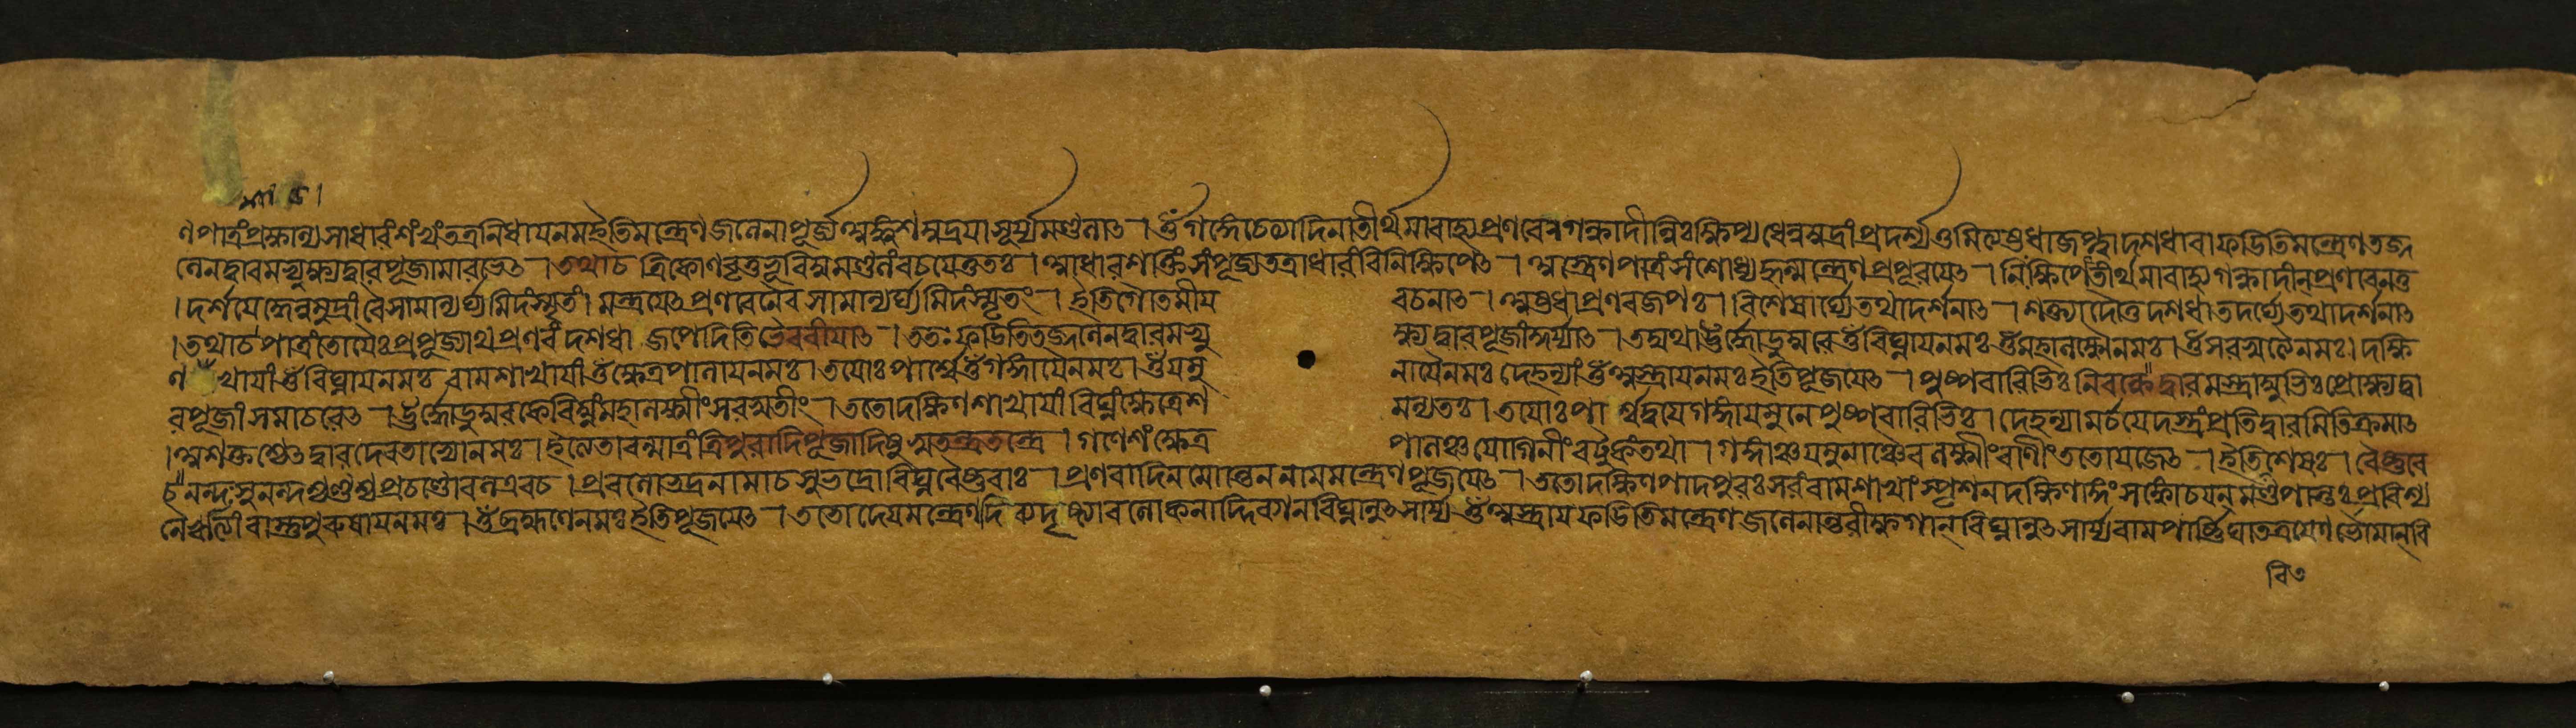 ণপাত্রং প্রক্ষাল্য সাধারং শংখং তত্র নিধায় নমইতিমন্ত্রেণ জলেনাপূর্জ্য অঙ্কুশমুদ্রয়া সূর্য্যমণ্ডলাৎ । ওঁ গঙ্গেচেত্যাদিনা তীর্থমাবাহ্য প্রণবেন গন্ধাদীন্নিঃক্ষিপ্য ধেনুমুদ্রাং প্রদর্শ্য ওমিত্যষ্টধাজপ্ত্বা দশধাবা ফডিতিমন্ত্রেণ তজ্জ
লেন দ্বারমভ্যুক্ষ্য দ্বারপূজামারভেৎ । তথাচ ত্রিকোণবৃত্তভূবিম্বমণ্ডলং রচয়েত্ততঃ । আধারশক্তিং সংপূজ্য তত্রাধারং বিনিক্ষিপেৎ । অস্ত্রেণ পাত্রং সংশোধ্য হৃন্মন্ত্রেণ প্রপূরয়েৎ । নিঃক্ষিপেত্তীর্থমাবাহ্য গন্ধাদীন্ প্রণবেনতু
। দর্শয়েদ্ধেনুমুদ্রাং বৈ সামান্যর্ঘ্যমিদং স্মৃতং । মন্ত্রয়েৎ প্রণবেনৈব সামান্যর্ঘ্যমিদং স্মৃতং । ইতিগৌতমীয় বচনাৎ । অষ্টধা প্রণবজপঃ । বিশেষার্ঘ্যে তথাদর্শনাৎ । শক্ত্যাদৌতু দশধা তদর্ঘ্যে তথাদর্শনাৎ
। তথাচ পাত্রং তোয়ৈঃ প্রপূজ্যাথ প্রণবং দশধা জপেদিতি ভৈরবীয়াৎ । ততঃ ফডিতিতজ্জলেন দ্বারমভ্যু ক্ষ্য দ্বারপূজাং কুর্য্যাৎ । তদ্যথা ঊর্দ্ধোডুম্বরে ওঁ বিঘ্নায়নমঃ ওঁ মহালক্ষ্ম্যৈনমঃ । ওঁ সরস্বত্যৈনমঃ । দক্ষি
ণ শাখায়াং ওঁ বিঘ্নায়নমঃ বামশাখায়াং ওঁ ক্ষেত্রপালায়নমঃ । তয়োঃপার্শ্বে ওঁ গঙ্গায়ৈনমঃ । ওঁ যমু নায়ৈনমঃ দেহল্যাং ওঁ অস্ত্রায়নমঃ ইতি পূজয়েৎ । পুষ্পবারিভিঃ দ্বারমস্ত্রাম্বুভিঃ প্রোক্ষ্য দ্বা
রপূজাং সমাচরেৎ । ঊর্দ্ধোডুম্বরকে বিঘ্নং মহালক্ষ্মীং সরস্বতীং । ততোদক্ষিণশাখায়াং বিঘ্নং ক্ষেত্রেশ মন্যতঃ । তয়োঃপার্শ্বদ্বয়ে গঙ্গাং যমুনে পুষ্পবারিভিঃ । দেহল্যামর্চয়েদস্ত্রং প্রতিদ্বারমিতিক্রমাৎ
। অশক্তশ্চেৎ দ্বারদেবতাভ্যোনমঃ । ইত্যেতাবন্মাত্রং ত্রিপুরাদিপূজাদিষু স্বতন্ত্রতন্ত্রে । গণেশং ক্ষেত্র পালঞ্চ যোগিনীং বটুকং তথা । গঙ্গাঞ্চ যমুনাঞ্চৈব লক্ষ্মীং বাণীং ততোযজেৎ । ইতিশেষঃ । বৈষ্ণবে
চ নন্দঃ সুনন্দশ্চণ্ডশ্চ প্রচণ্ডোবলএবচ । প্রবলোভদ্রনামাচ সুভদ্রোবিঘ্নবৈষ্ণবাঃ । প্রণবাদিনমোন্তেন নামমন্ত্রেণ পূজয়েৎ । ততোদক্ষিণপাদপুরঃসরং বামশাখাং স্পৃশন্ দক্ষিণাঙ্গং সঙ্কোচয়ন্ মণ্ডপান্তঃ প্রবিশ্য
নৈঋত্যাং বাস্তুপুরুষায়নমঃ । ওঁ ব্রহ্মণেনমঃ ইতিপূজয়েৎ । ততোদেয়মন্ত্রেণ দিব্যদৃষ্ট্যাবলোকনাদ্দিব্যান্ বিঘ্নানুৎসার্য্য ওঁ অস্ত্রায়ফডিতিমন্ত্রেণ জলেনান্তরীক্ষগান্ বিঘ্নানুৎসার্য্য বামপার্ষ্ণিঘাতত্রয়েণ ভৌমান্ বি